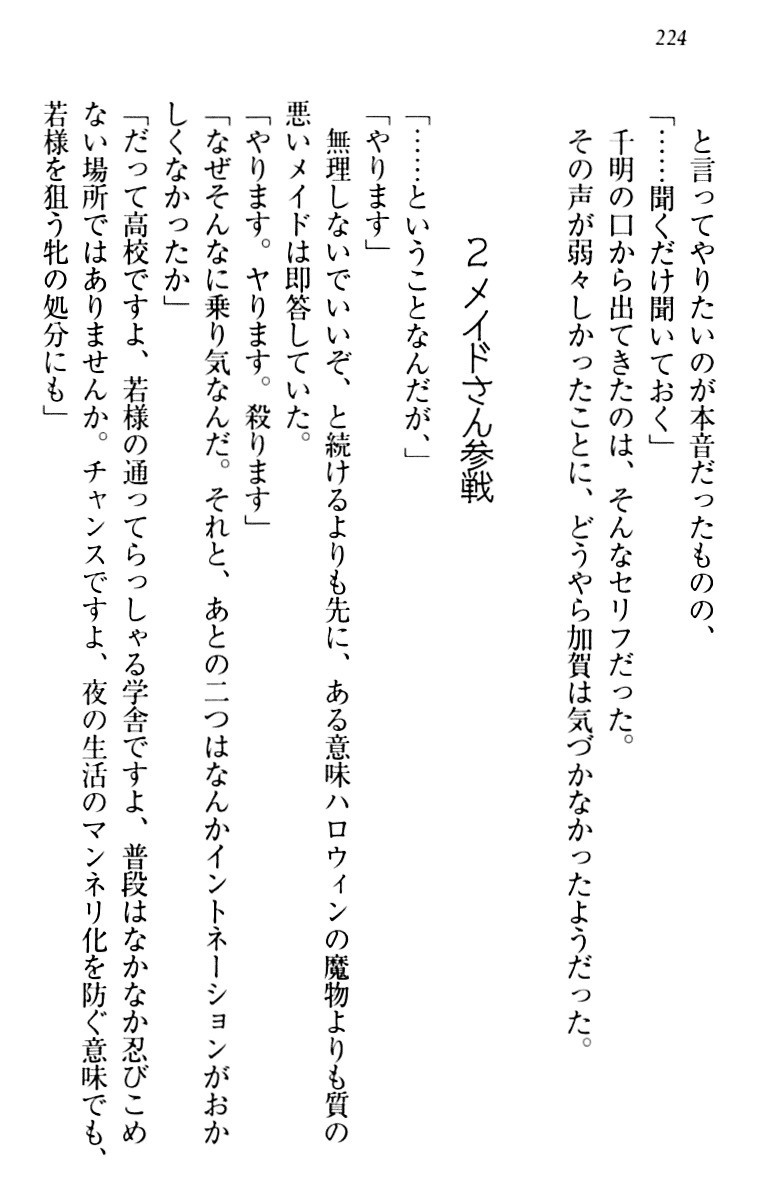 224
と言ってやりたいのが本音だったものの、
「……聞くだけ聞いておく」
千明の口から出てきたのは、そんなセリフだった。
その声が弱々しかったことに、どうやら加賀は気づかなかったようだった。
2 メイドさん参戦
「……ということなんだが、」
「やります」
無理しないでいいぞ、と続けるよりも先に、ある意味ハロウィンの魔物よりも質の
悪いメイドは即答していた。
「やります。ヤります。殺ります」
「なぜそんなに乗り気なんだ。それと、あとの二つはなんかイントネーションがおか
しくなかったか」
「だって高校ですよ、若様の通ってらっしゃる学舎ですよ、普段はなかなか忍びこめ
ない場所ではありませんか。チャンスですよ、夜の生活のマンネリ化を防ぐ意味でも、
若様を狙う牝の処分にも」